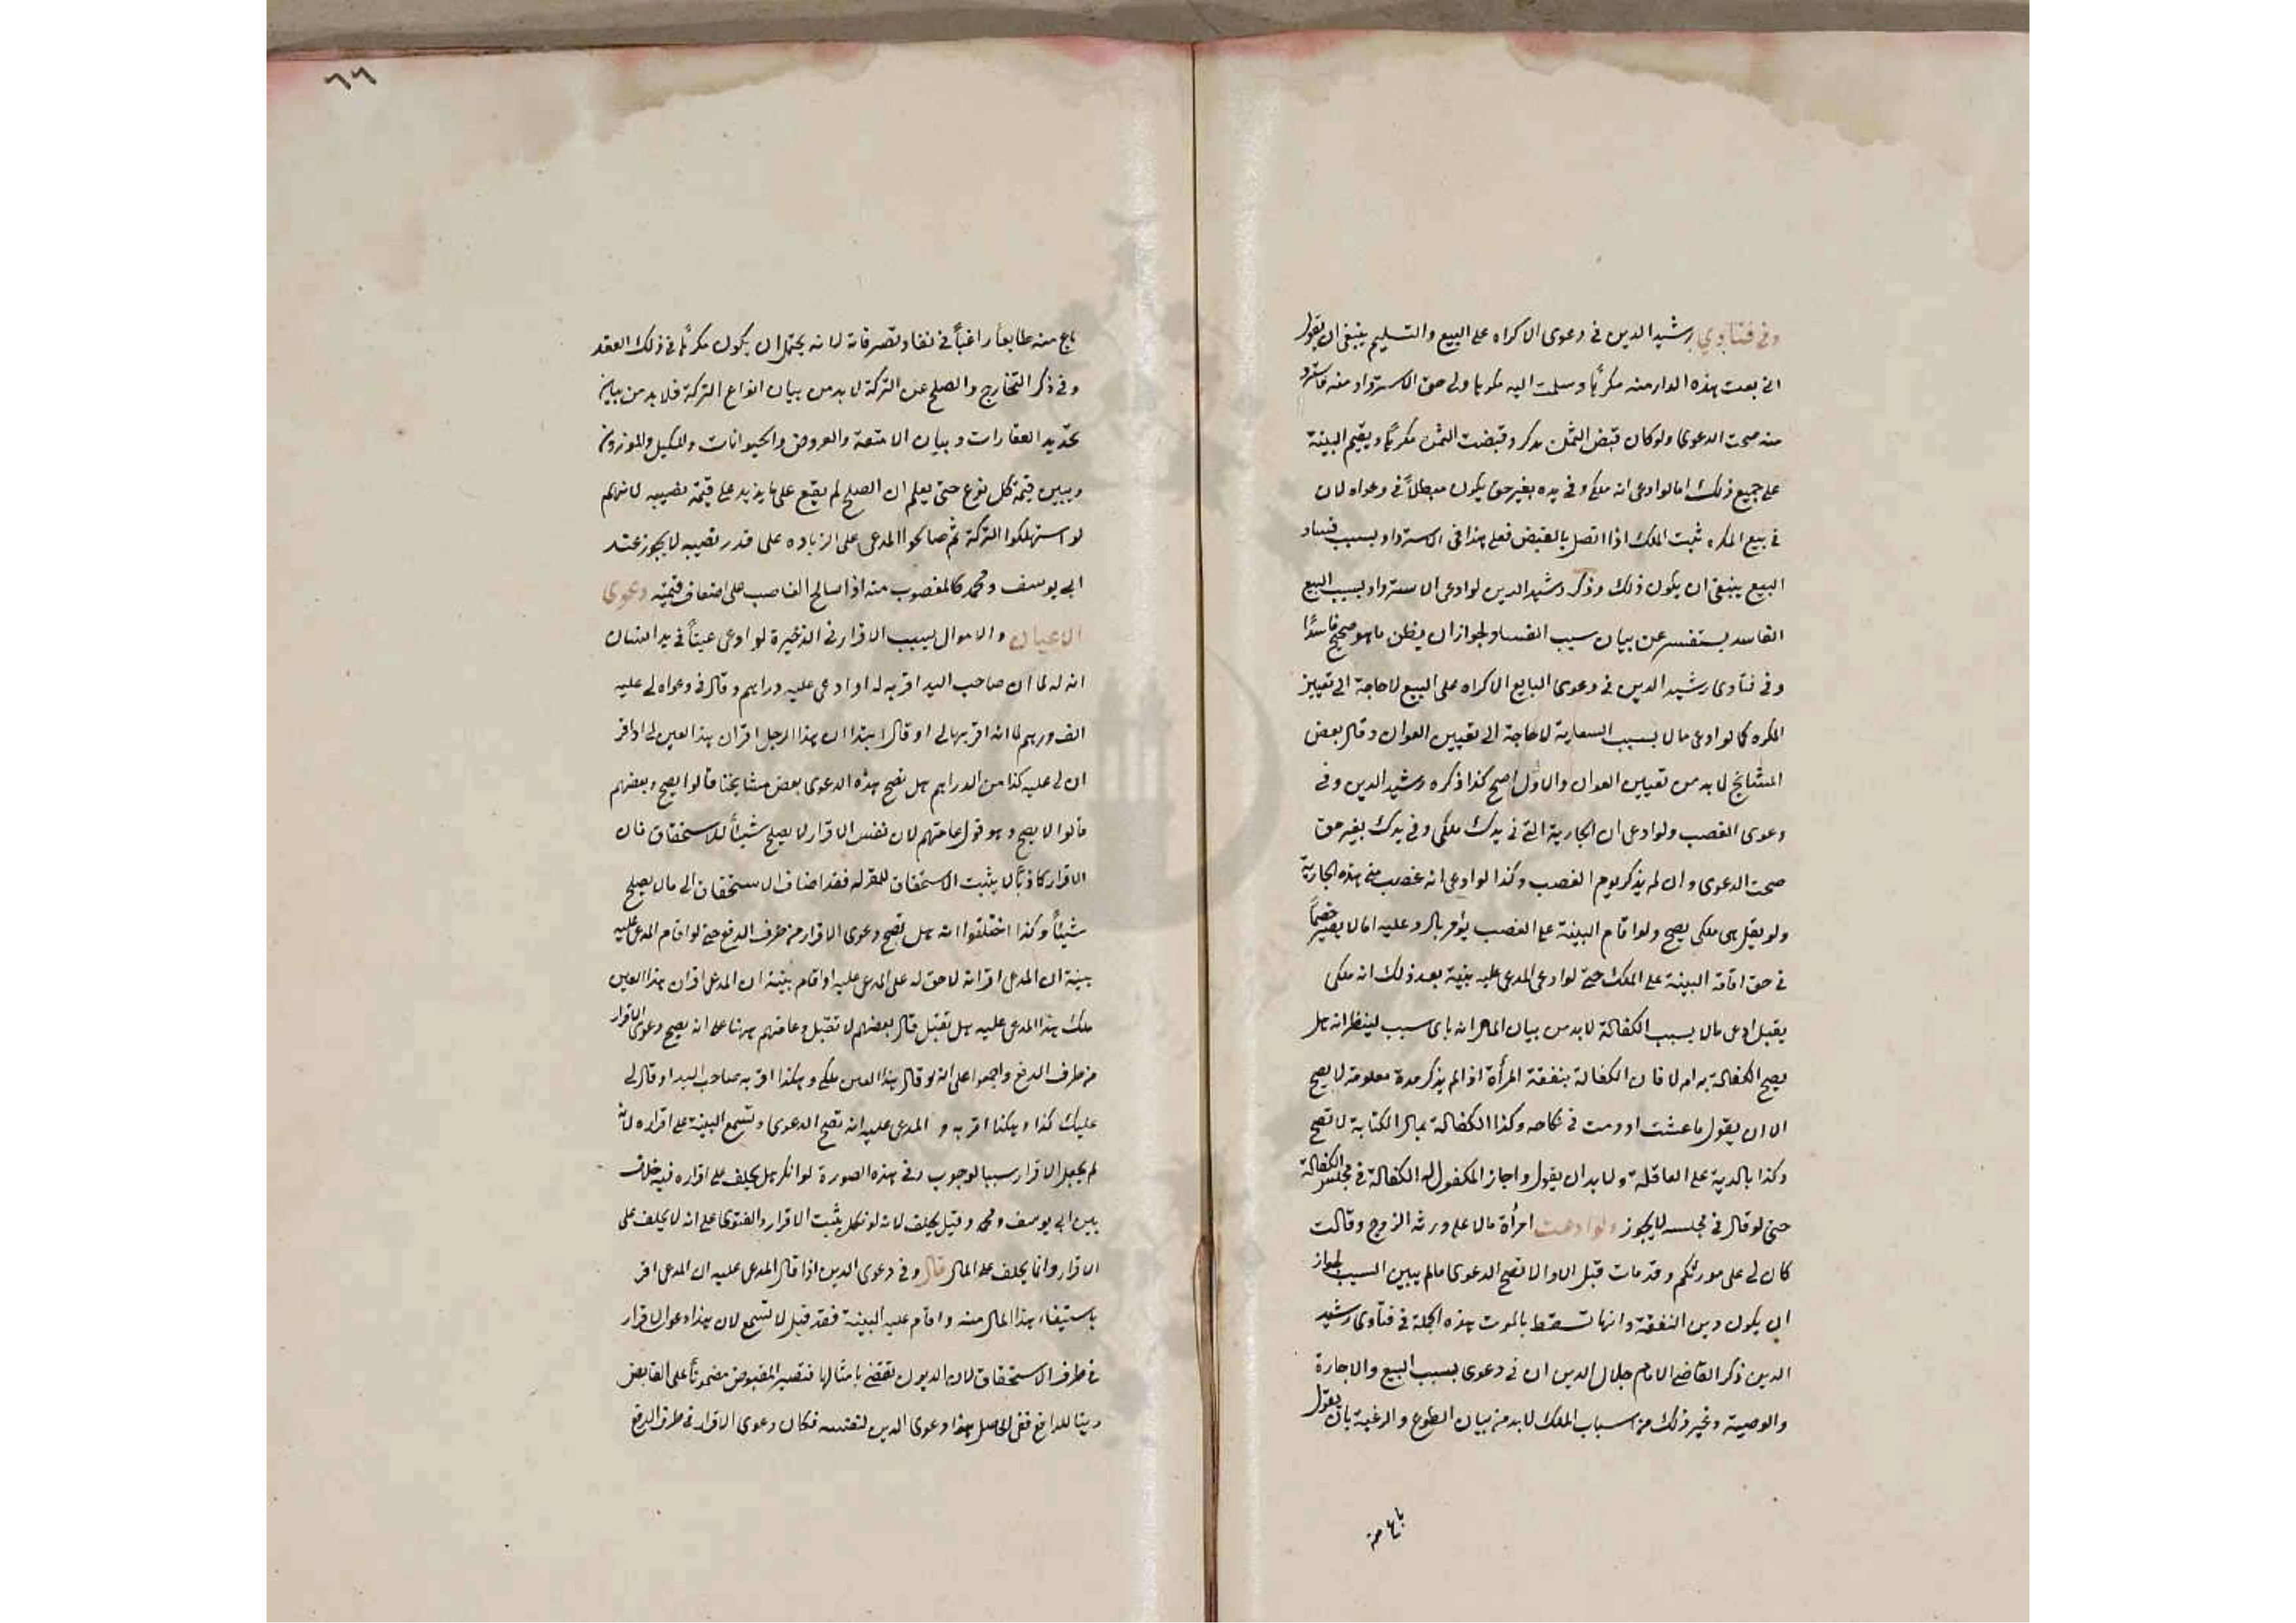 وفي فتاوي رشيد الدين في دعوى الاكراه على البيع والتسليم ينبغي ان يقول
اني بعت هذه الدار منه مكرها وسلمت اليه مكرها ولي حق الاسترداد منه فاسترد
منه صحت الدعوى ولو كان قبض الثمن يذكر وقبضت الثمن مكرها ويقيم البينة
على جميع ذلك اما لو ادعى انه ملكي وفي يده بغير حق يكون مبطلاً في دعواه لان
في بيع المكره ثبت الملك اذا اتصل بالقبض فعلى هذا في الاسترداد بسبب فساد
البيع ينبغي ان يكون ذلك وذكر رشيد الدين لو ادعى الاسترداد بسبب البيع
الفاسد يستفسر عن بيان سبب الفساد لجواز ان يظن ما هو صحيح فاسداً
وفي فتاوى رشيد الدين في دعوى البايع الاكراه على البيع لا حاجة الى تعيين
المكره كما لو ادعى مالا بسبب السعاية لا حاجة الى تعيين العوان وقال بعض
المشايخ لا بد من تعيين العوان والاول اصح كذا ذكره رشيد الدين وفي
دعوى الغصب ولو ادعى ان الجارية التي في يدك ملكي وفي يدك بغير حق
صحت الدعوى وان لم يذكر يوم الغصب وكذا لو ادعى انه غصب مني هذه الجارية
ولم يقل هي ملكي يصح ولو اقام البينة على الغصب يؤمر بالرد عليه اما لا يصير خصماً
في حق اقامة البينة على الملك حتى لو ادعى المدعى عليه بينة بعد ذلك انه ملكي
يقبل ادعى مالا بسبب الكفالة لا بد من بيان المال انه باي سبب لينظر انه هل
يصح الكفالة به ام لا فان الكفالة بنفقة المرأة اذا لم يذكر مدة معلومة لا يصح
الا ان يقول ما عشت او دمت في نكاحه وكذا الكفالة بمال الكتابة لا تصح
وكذا بالدية على العاقلة ولا بد ان يقول واجاز المكفول له الكفالة في مجلس الكفالة
حتى لو قال في مجلسه لا يجوز ولو ادعت امرأة مالا على ورثة الزوج وقالت
كان لي على مورثكم وقد مات قبل الاداء لا تصح الدعوى مالم يبين السبب لجواز
ان يكون دين النفقة وانها تسقط بالموت هذه الجملة في فتاوى رشيد
الدين ذكر القاضي الامام جلال الدين ان في دعوى بسبب البيع والاجارة
والوصية وغير ذلك من اسباب الملك لا بد من بيان الطوع والرغبة بان يقول
باع منه
٦٦
باع منه طايعاً راغباً في نفاد تصرفاته لانه يحتمل ان يكون مكرهاً في ذلك العقد
وفي ذكر التخارج والصلح عن التركة لا بد من بيان انواع التركة فلا بد من بيان
تحديد العقارات وبيان الامتعة والعروض والحيوانات والمكيل والموزون
ويبين قيمة كل نوع حتى يعلم ان الصلح لم يقع على ما يزيد على قيمة نصيبه لانهم
لو استهلكوا التركة ثم صالحوا المدعى على الزيادة على قدر نصيبه لا يجوز عند
ابي يوسف ومحمد كالمغصوب منه اذا صالح الغاصب على اضعاف قيمته دعوى
الاعيان والاموال بسبب الاقرار في الذخيرة لو ادعى عيناً في يد انسان
انه له لما ان صاحب اليد اقر به له او ادعى عليه دراهم وقال في دعواه لي عليه
الف درهم لما انه اقر بها لي او قال ابتدا ان هذا الرجل اقر ان هذا العين لي او اقر
ان لي عليه كذا من الدراهم هل تصح هذه الدعوى بعض مشايخنا قالوا يصح وبعضهم
قالوا لا يصح وهو قول عامتهم لان نفس الاقرار لا يصلح شيأً للاستحقاق فان
الاقرار كاذباً لا يثبت الاستحقاق للمقر له فقد اضاف الاستحقاق الى مال يصلح
شيئاً وكذا اختلفوا انه هل تصح دعوى الاقرار من طرف الدفع حتى لو اقام المدعى عليه
بينة ان المدعى اقر انه لا حق له على المدعى عليه او اقام بينة ان المدعى اقر ان هذا العين
ملك هذا المدعى عليه هل تقبل قال بعضهم لا تقبل وعامتهم ههنا على انه يصح دعوى الاقرار
من طرف الدفع واجمعوا على انه لو قال هذا العين ملكي وهكذا اقر به صاحب اليد او قال لي
عليك كذا وهكذا اقر به المدعى عليه انه تصح الدعوى وتسمع البينة على اقراره لانه
لم يجعل الاقرار سببا لوجوب وفي هذه الصورة لو انكر هل يحلف على اقراره فيه خلاف
بين ابي يوسف ومحمد وقيل يحلف لانه لو نكل يثبت الاقرار والفتوى على انه لا يحلف على
الاقرار وانما يحلف على المال قال وفي دعوى الدين اذا قال المدعى عليه ان المدعى اقر
باستيفاء هذا المال منه واقام عليه البينة فقد قيل لا تسمع لان هذا دعوى الاقرار
في طرف الاستحقاق لان الديون تقضى بامثالها فتصير المقبوض مضموناً على القابض
دينا للدافع ففي الحاصل هذا دعوى الدين لنفسه فكان دعوى الاقرار في طرف الدفع